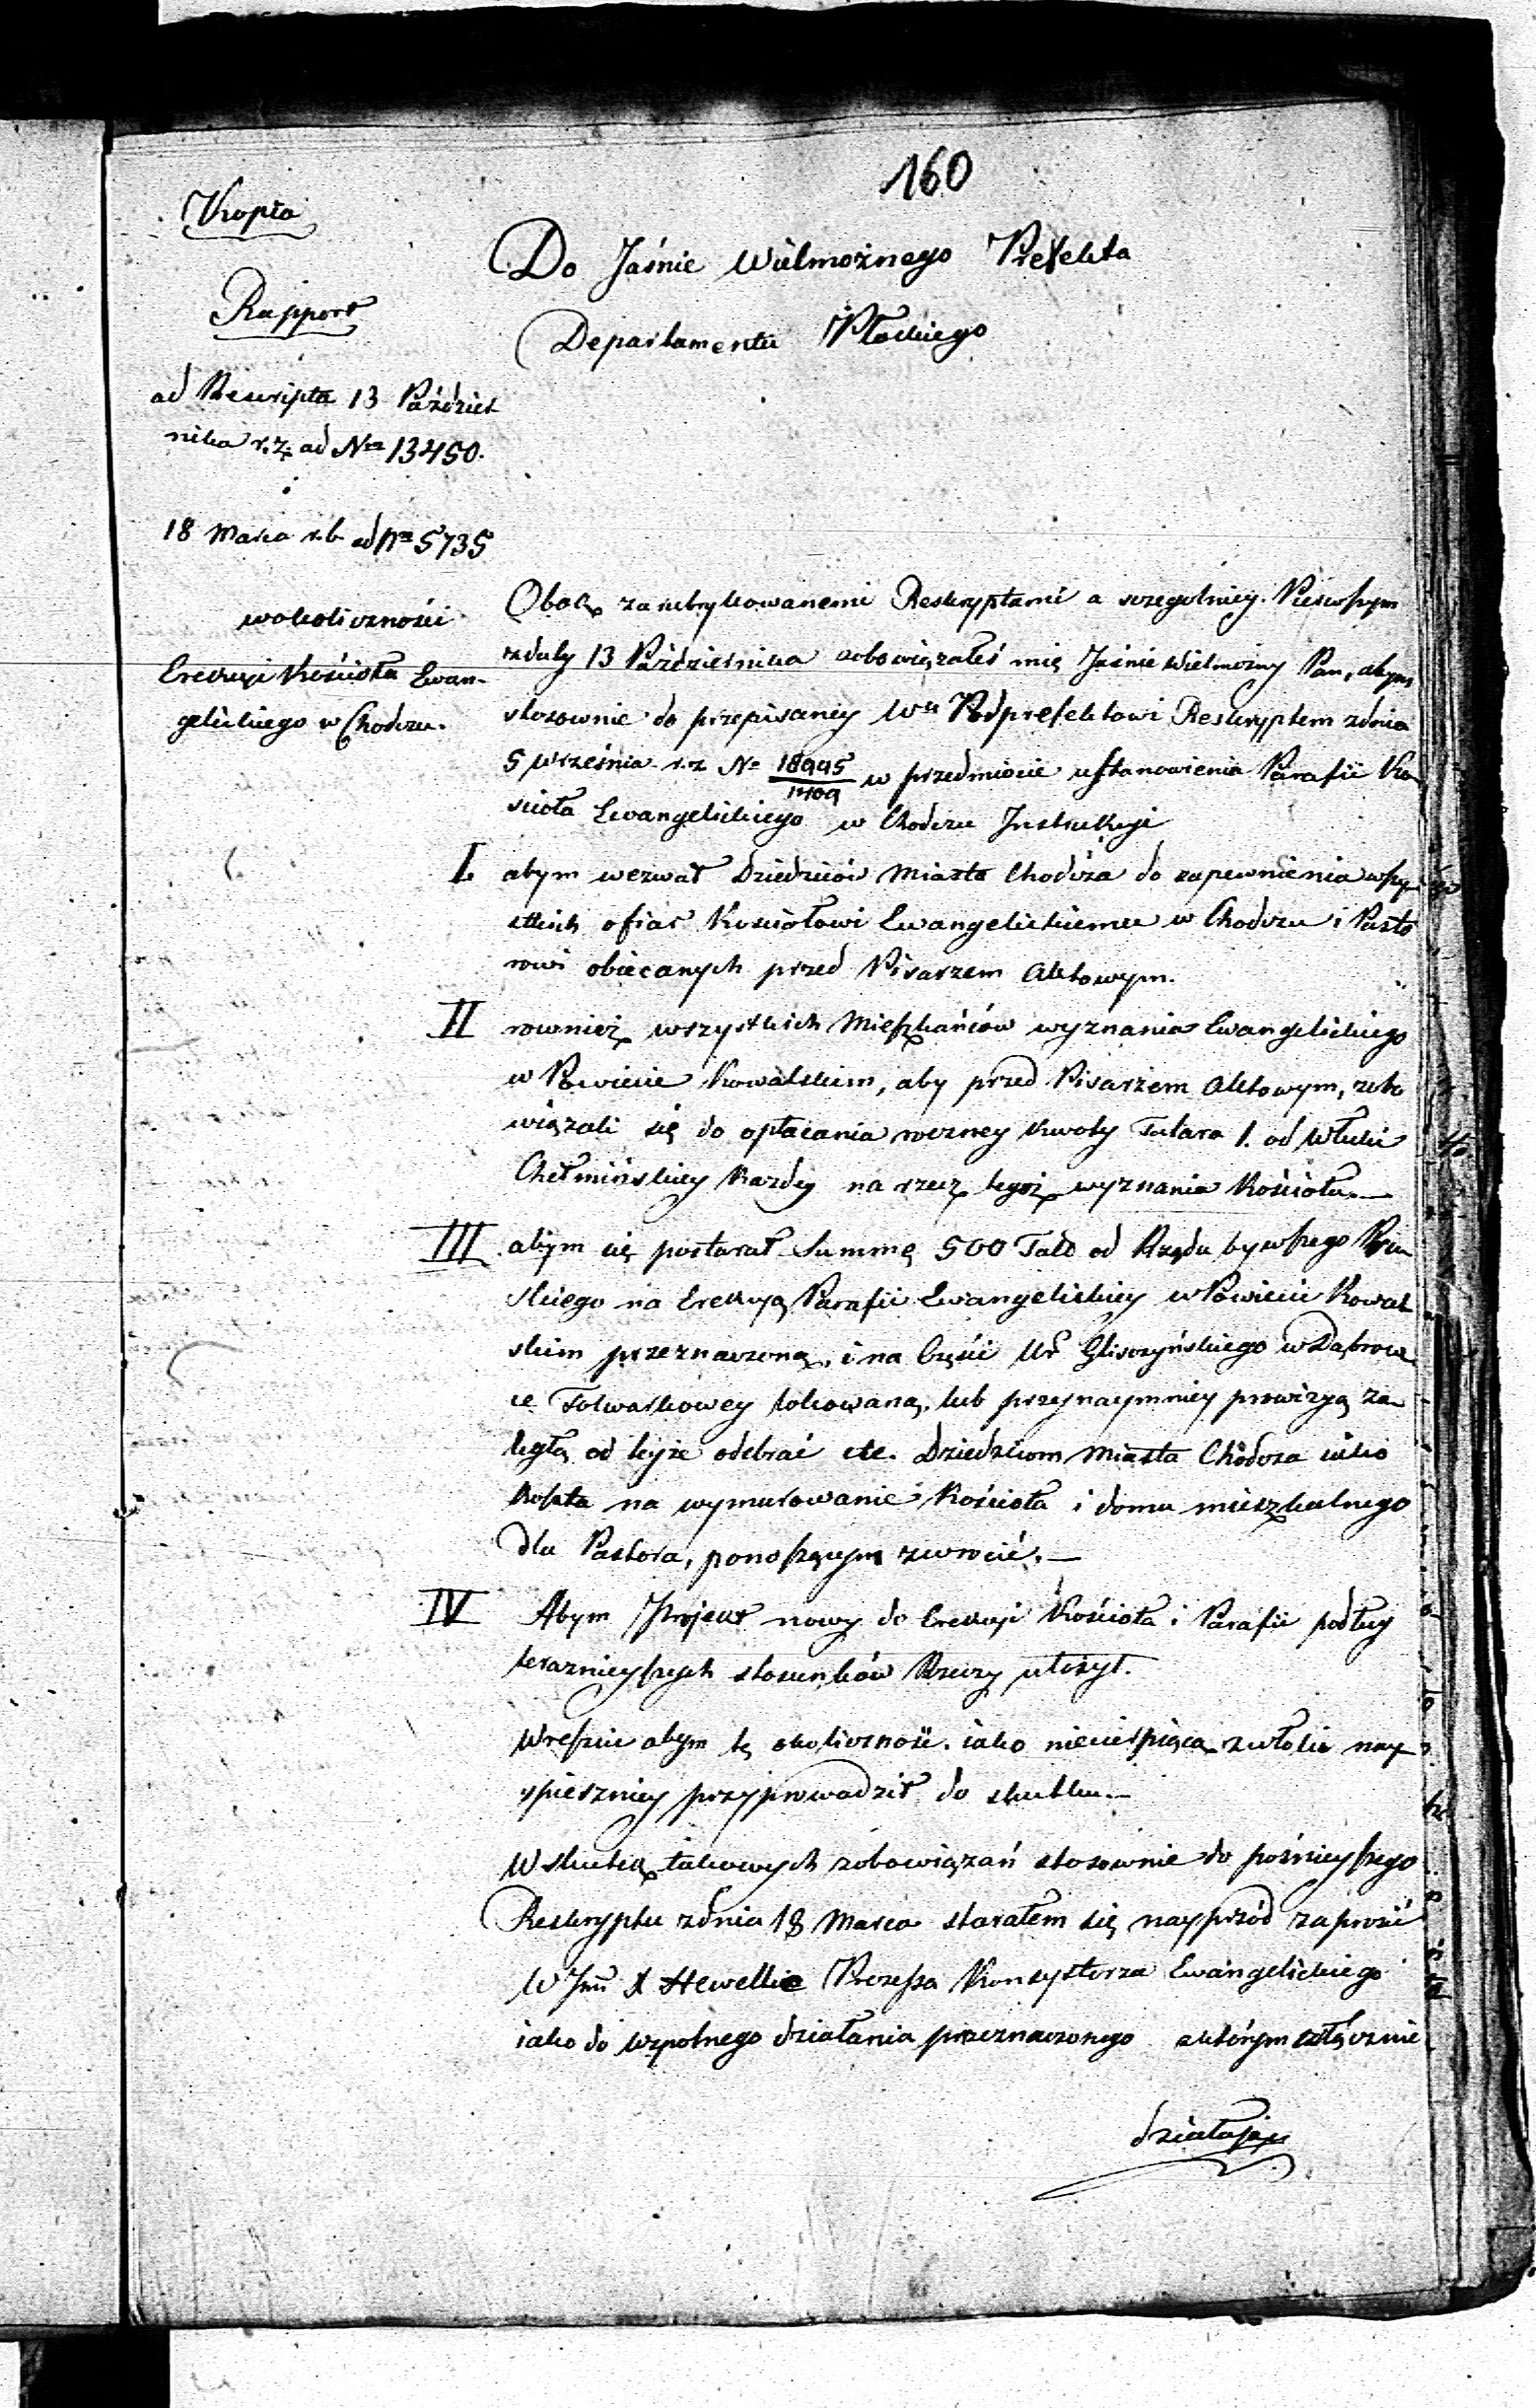 160
Kopia
Rapport
ad Rescripta 13 Paździer
nika r.z. ad Nrm 13450.
i
18 Marca r.b. ad Nrm 5735
wokoliczności
Erekcyi Kościoła Ewan-
gelickiego w Chodczu.
Do Jaśnie Wielmożnego Prefekta
Departamentu Płockiego
Obok zarubrykowanemi Reskryptami a szczegolniey Pierwszym
zdaty 13 Października zobowiązałeś mię Jaśnie Wielmożny Pan, abym
stosownie do przepisaney Wu Podprefektowi Reskryptem zdnia
5 września r.z. No w przedmiocie ustanowienia Parafii Ko
scioła Ewangelickiego w Chodczu Instrukcyi
I. abym wezwał Dziedziców Miasta Chodcza do zapewnienia wszy
stkich ofiar Kosciołowi Ewangelickiemu w Chodczu i Pasto
rowi obiecanych przed Pisarzem Aktowym.
II rownież wszystkich Mieszkańców wyznania Ewangelickiego
w Powiecie Kowalskim, aby przed Pisarzem Aktowym, zobo
wiązali się do opłacania roczney kwoty Talara 1. od Włuki
Chełmińskiey Kazdey na rzecz tegoż wyznania Kościoła.—
III. abym się postarał Summę 500 Tald od Rządu bywszego Pru
skiego na Erekcyą Parafii Ewangelickiey w Powiecie Kowal
skim przeznaczoną, i na Części Ur Gliszczyńskiego w Dąbrow
ce Folwarkowey lokowaną, lub przynaymniey prowizyą za
ległą od teyże odebrać etc. Dziedzicom Miasta Chodcza iako
koszta na wymurowanie Kościoła i domu mieszkalnego
dla Pastora, ponoszącym zwrocić.—
IV Abym Projekt nowy do Erekcyi Kościoła i Parafii podług
teraznieyszych stosunków Rzeczy ułożył.
Wreszcie abym tę okoliczność iako niecierpiącą zwłoki nay
spieszniey przyprowadził do skutku.—
W skutek takowych zobowiązań stosownie do poźnieyszego
Reskryptu zdnia 18 Marca starałem się nayprzód zaprosić
W Jmć X Hewelke Prezesza Konsystorza Ewangelickiego
iako do wspolnego działania przeznaczonego z którym złącznie
działając